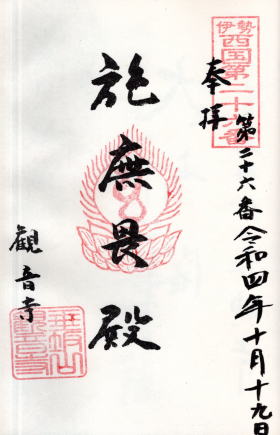 伊勢
西国第二十六番
奉拝
第二十六番令和四年十月十九日
施無畏殿
観音寺